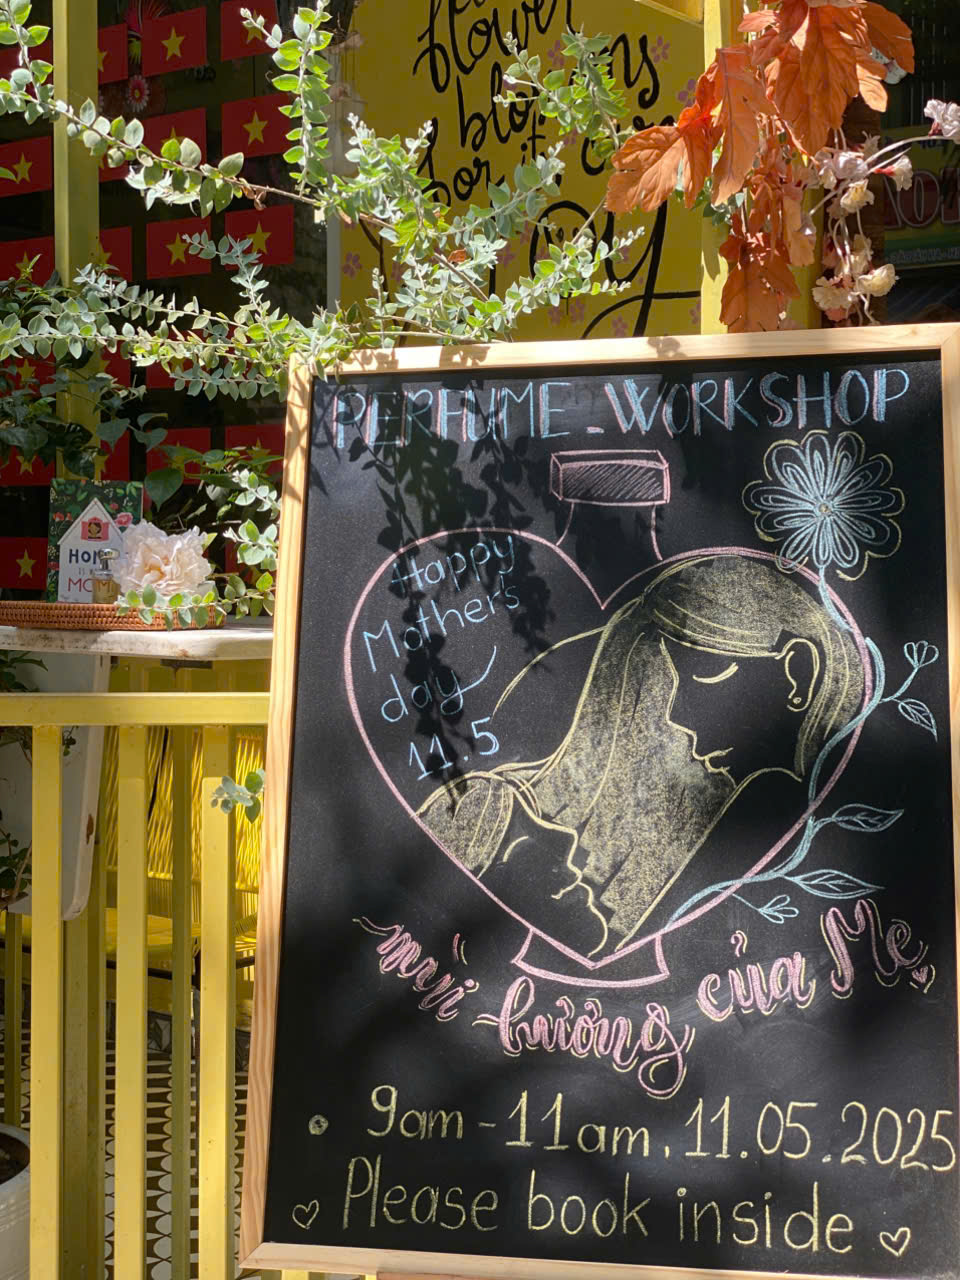 flower
for it
joy
HOME
MOM
PERFUME - WORKSHOP
Happy
Mother's
day
11.5
mùi hương của Mẹ
9am - 11am, 11.05.2025
Please book inside